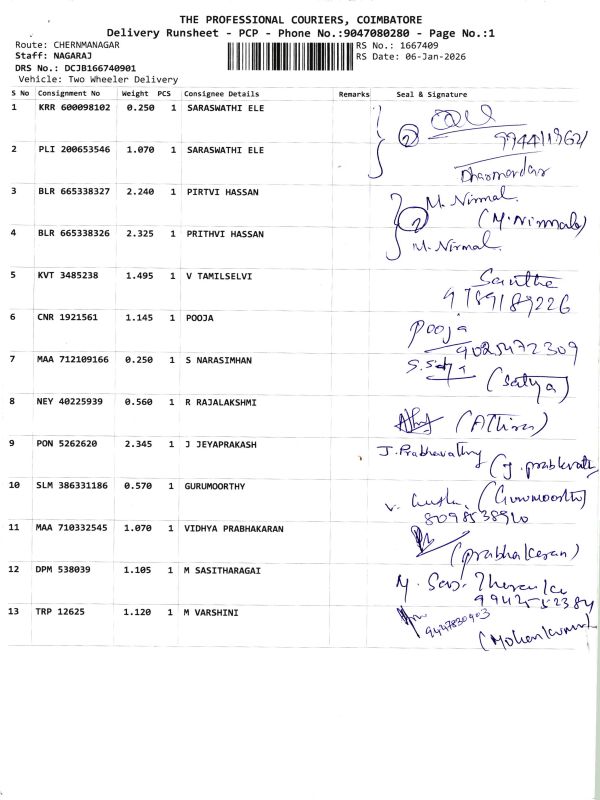 THE PROFESSIONAL COURIERS, COIMBATORE
Delivery Runsheet - PCP - Phone No.:9047080280 - Page No.:1
Route: CHERNMANAGAR
RS No.: 1667409
Staff: NAGARAJ
RS Date: 06-Jan-2026
DRS No.: DCJB166740901
Vehicle: Two Wheeler Delivery
S No Consignment No Weight PCS Consignee Details Remarks Seal & Signature
1 KRR 600098102 0.250 1 SARASWATHI ELE
2
2 PLI 200653546 1.070 1 SARASWATHI ELE
3 BLR 665338327 2.240 1 PIRTVI HASSAN M. Nirmal
2 (M. Nirmala)
4 BLR 665338326 2.325 1 PRITHVI HASSAN M. Nirmal
5 KVT 3485238 1.495 1 V TAMILSELVI
9789189226
6 CNR 1921561 1.145 1 POOJA Pooja
9025472309
7 MAA 712109166 0.250 1 S NARASIMHAN
(Satya)
8 NEY 40225939 0.560 1 R RAJALAKSHMI (Athira)
9 PON 5262620 2.345 1 J JEYAPRAKASH J. Prabhavathy
10 SLM 386331186 0.570 1 GURUMOORTHY (Gurumoorthy)
11 MAA 710332545 1.070 1 VIDHYA PRABHAKARAN
(prabhakaran)
12 DPM 538039 1.105 1 M SASITHARAGAI
9942552384
13 TRP 12625 1.120 1 M VARSHINI
9447830903